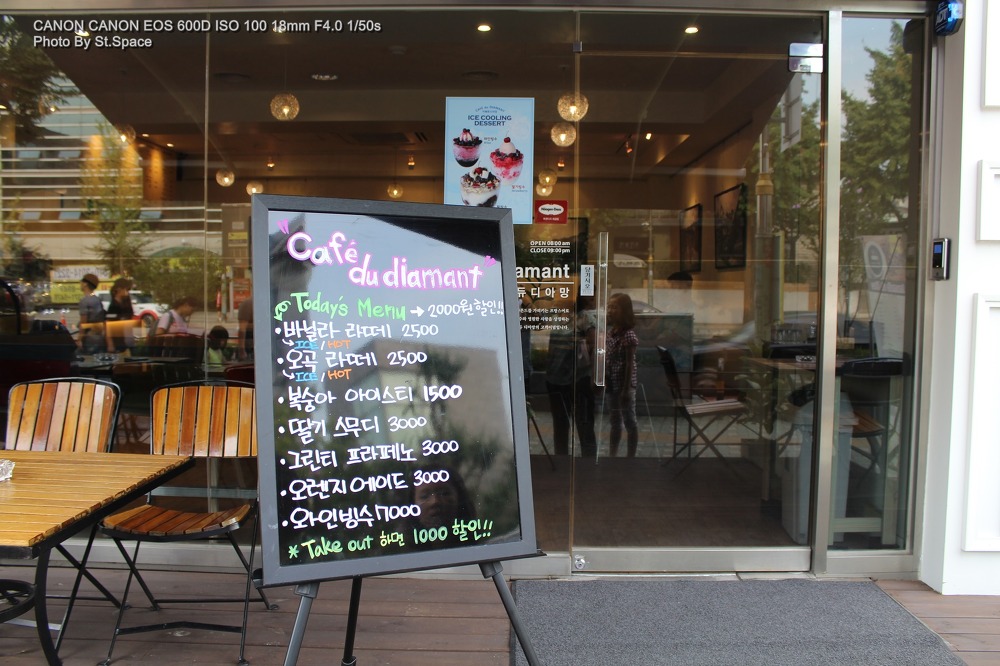 CANON CANON EOS 600D ISO 100 18mm F4.0 1/50s
Photo By St.Space
ICE COOLING
DESSERT
Häagen-Dazs
OPEN 08:00 am
CLOSE 09:00 pm
amant
듀 디 아 망
"Café
du diamant"
Today's Menu → 2000원 할인!!
•바닐라 라떼 2500
↳ICE / HOT
•오곡 라떼 2500
↳ICE / HOT
•복숭아 아이스티 1500
•딸기 스무디 3000
•그린티 프라페노 3000
•오렌지에이드 3000
•와인빙수 17000
* Take out 하면 1000 할인!!